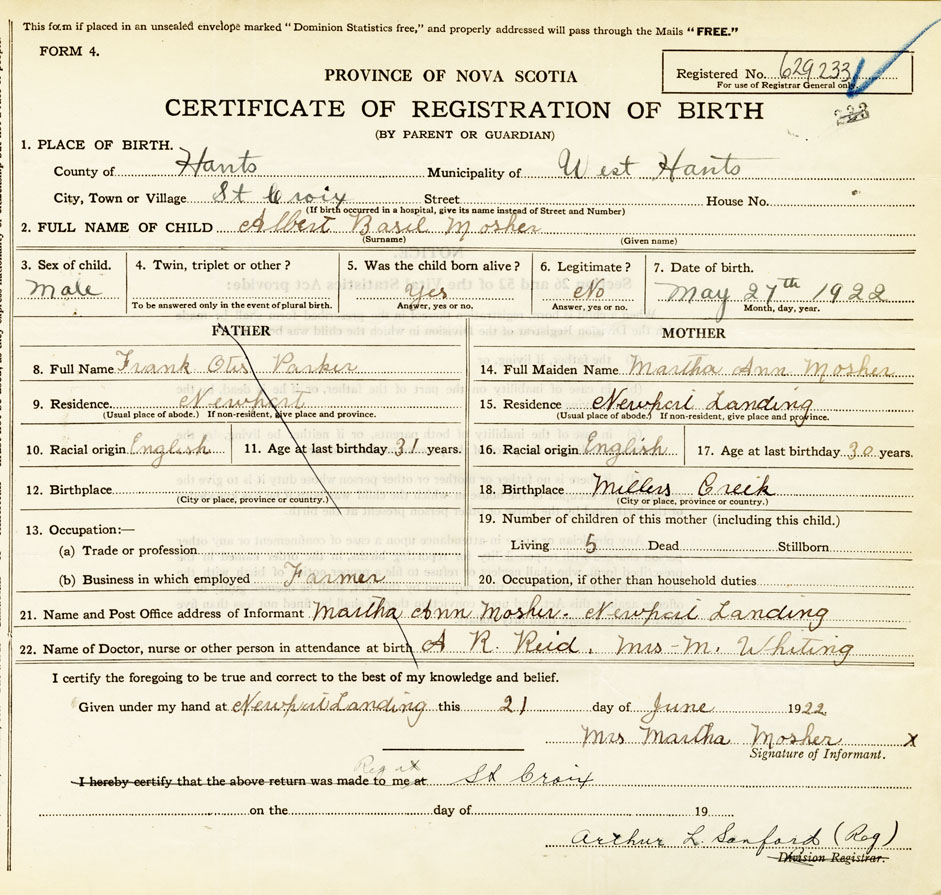 This form if placed in an unsealed envelope marked "Dominion Statistics free," and properly addressed will pass through the Mails "FREE."
FORM 4.
Registered No. 629233
For use of Registrar General only
PROVINCE OF NOVA SCOTIA
CERTIFICATE OF REGISTRATION OF BIRTH
(BY PARENT OR GUARDIAN)
1. PLACE OF BIRTH.
County of Hants Municipality of West Hants
City, Town or Village St Croix Street House No.
(If birth occurred in a hospital, give its name instead of Street and Number)
2. FULL NAME OF CHILD Albert Basil Mosher
(Surname) (Given name)
3. Sex of child. 4. Twin, triplet or other? 5. Was the child born alive? 6. Legitimate? 7. Date of birth.
Male Yes No May 27th 1922
To be answered only in the event of plural birth. Answer, yes or no. Answer, yes or no. Month, day, year.
FATHER
8. Full Name Frank Otis Parker
9. Residence. Newport
(Usual place of abode.) If non-resident, give place and province.
10. Racial origin English 11. Age at last birthday 31 years.
12. Birthplace
(City or place, province or country.)
13. Occupation:—
(a) Trade or profession
(b) Business in which employed Farmer
MOTHER
14. Full Maiden Name Martha Ann Mosher
15. Residence Newport Landing
(Usual place of abode.) If non-resident, give place and province.
16. Racial origin English 17. Age at last birthday 30 years.
18. Birthplace Millers Creik
(City or place, province or country.)
19. Number of children of this mother (including this child.)
Living 5 Dead Stillborn
20. Occupation, if other than household duties
21. Name and Post Office address of Informant Martha Ann Mosher. Newport Landing
22. Name of Doctor, nurse or other person in attendance at birth A R. Reid. Mrs M. Whiting
I certify the foregoing to be true and correct to the best of my knowledge and belief.
Given under my hand at Newport Landing this 21 day of June 1922
Mrs Martha Mosher X
Signature of Informant.
Reg at
I hereby certify that the above return was made to me at St Croix
on the day of 19
Arthur L. Sanford (Reg)
Division Registrar.